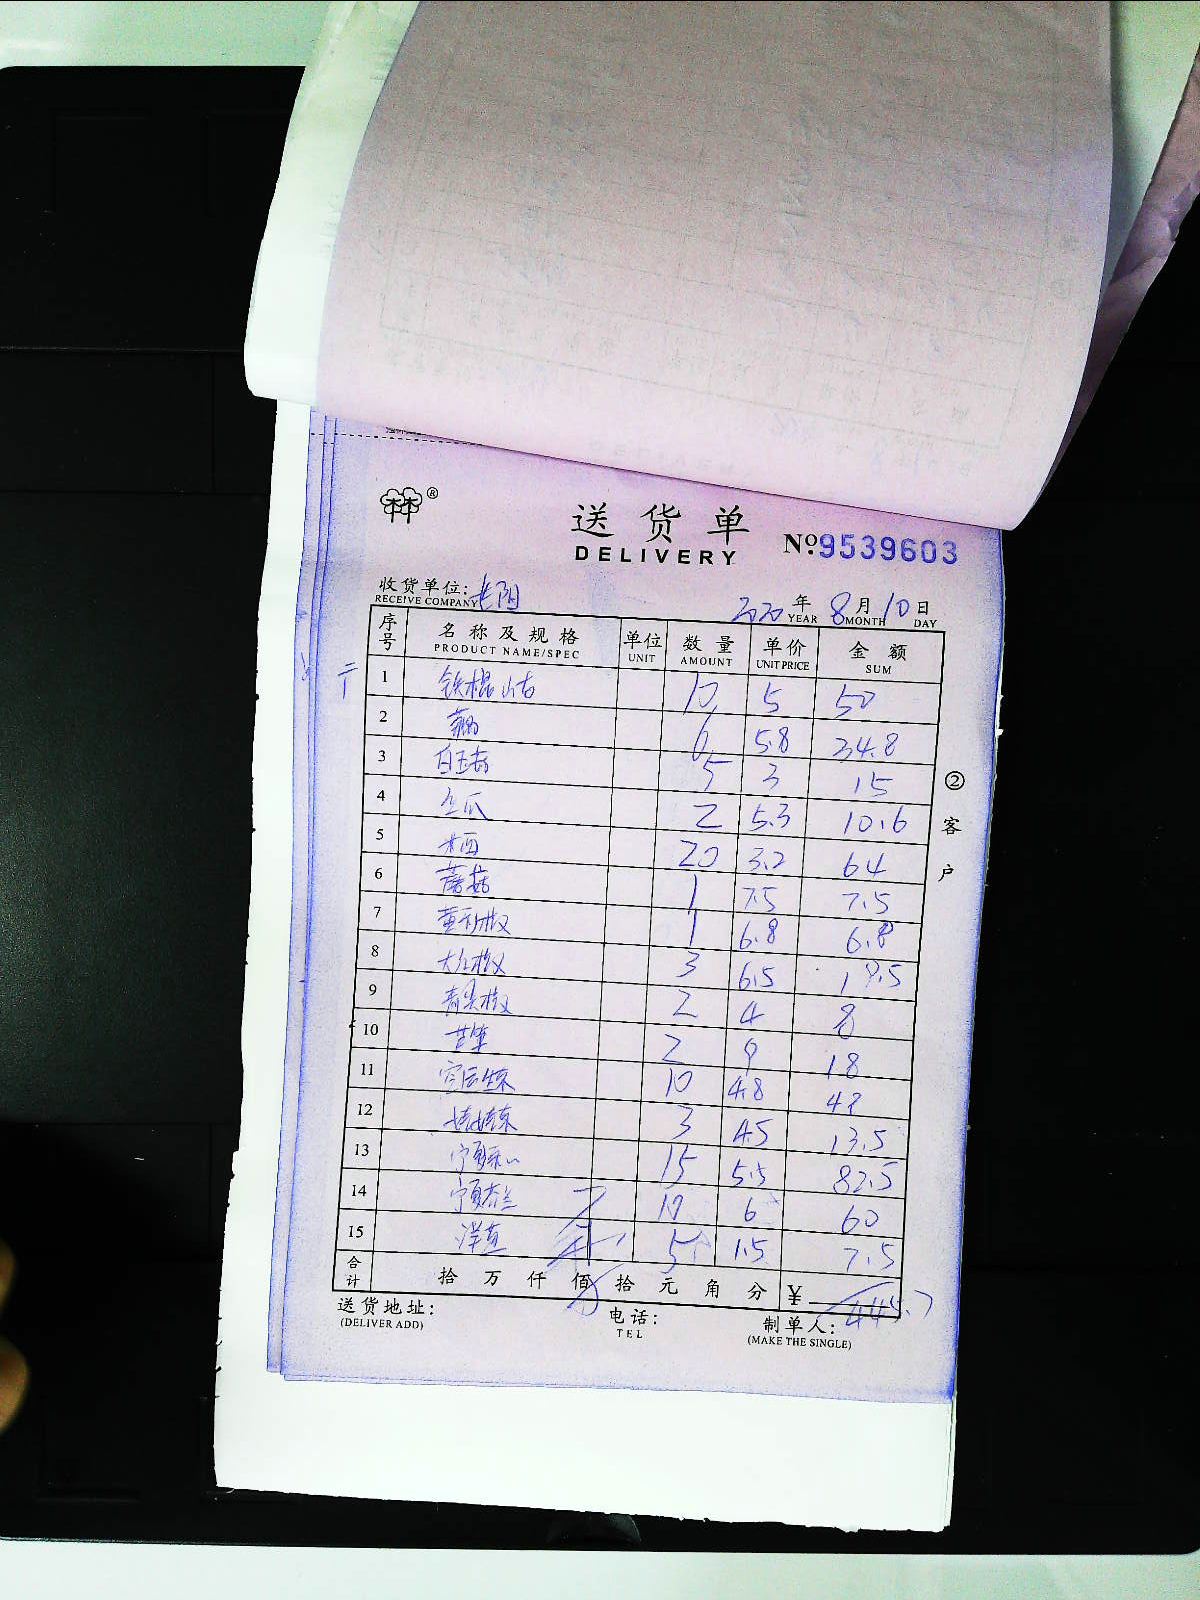 送货单 №9539603
DELIVERY
收货单位：老阳 2020年8月10日
RECEIVE COMPANY YEAR MONTH DAY
序号 名称及规格 单位 数量 单价 金额
PRODUCT NAME/SPEC UNIT AMOUNT UNIT PRICE SUM
1 铁棍山古 10 5 50
2 藕 6 5.8 34.8
3 白玉古 5 3 15
4 2 5.3 10.6
5 木西 20 3.2 64
6 蘑菇 1 7.5 7.5
7 黄彩椒 1 6.8 6.8
8 大红椒 3 6.5 19.5
9 青尖椒 2 4 8
10 2 9 18
11 10 4.8 48
12 娃娃菜 3 4.5 13.5
13 宁夏菜心 15 5.5 82.5
14 宁夏芥兰 10 6 60
15 洋葱 5 1.5 7.5
合计 拾 万 仟 佰 拾 元 角 分 ¥ 445.7
送货地址： 电话： 制单人：
(DELIVER ADD) TEL (MAKE THE SINGLE)
②客户